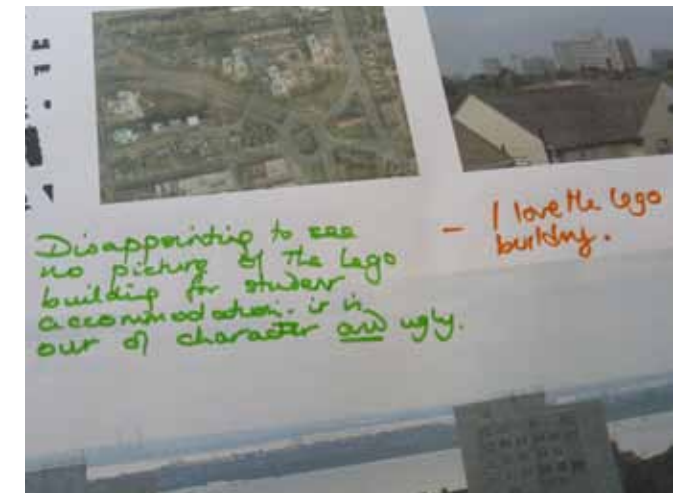 Disappointing to see
no picture of the Lego
building for student
accommodation. it is
out of character and ugly.
- I love the lego
building.